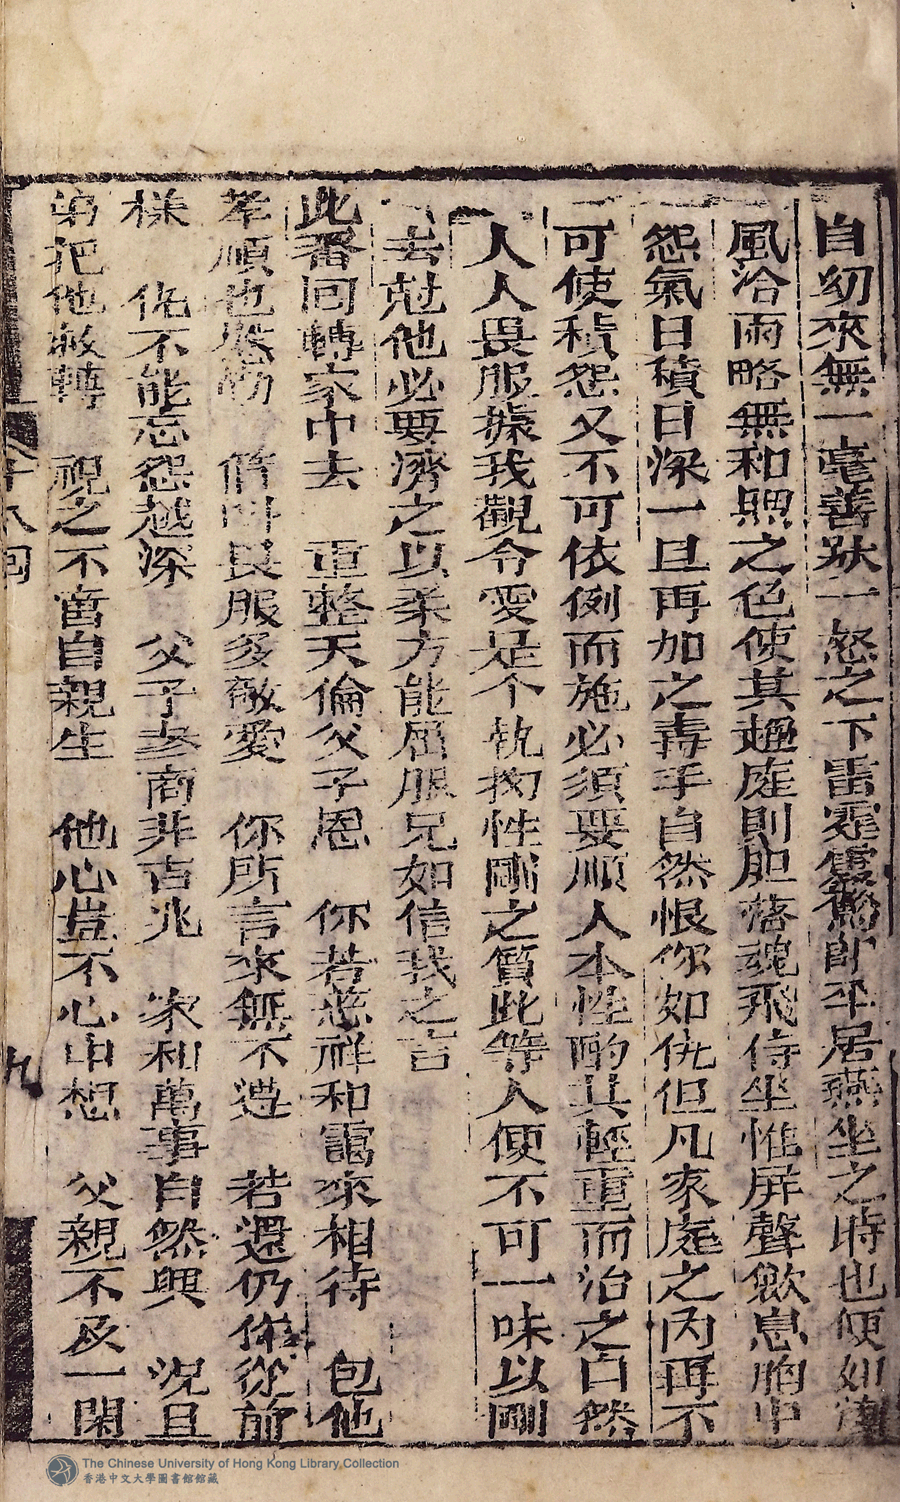 自幼來無一毫善狀一怒之下雷霆震驚卽平居燕坐之時也便如
風洽雨略無和煦之色使其趨庭則胆落魂飛侍坐惟屏聲歛息胸中
怨氣日積日深一旦再加之毒手自然恨你如仇但凡家庭之內再不
可使積怨又不可依例而施必須要順人本性酌其輕重而治之自然
人人畏服據我觀令愛是个執拘性剛之質此等人便不可一味以剛
去尅他必要濟之以柔方能屈服兄如信我之言
此番回轉家中去 重整天倫父子恩 你若慈祥和靄來相待 包他
孝順也慇懃 借叫畏服多敬愛 你所言來無不遵 若還仍作從前
樣 他不能忘怨越深 父子參商非吉兆 家和萬事自然興 况且
弟把他救轉 視之不啻自親生 他心豈不心中想 父親不及一閑
十八回
九
The Chinese University of Hong Kong Library Collection
香港中文大學圖書館館藏